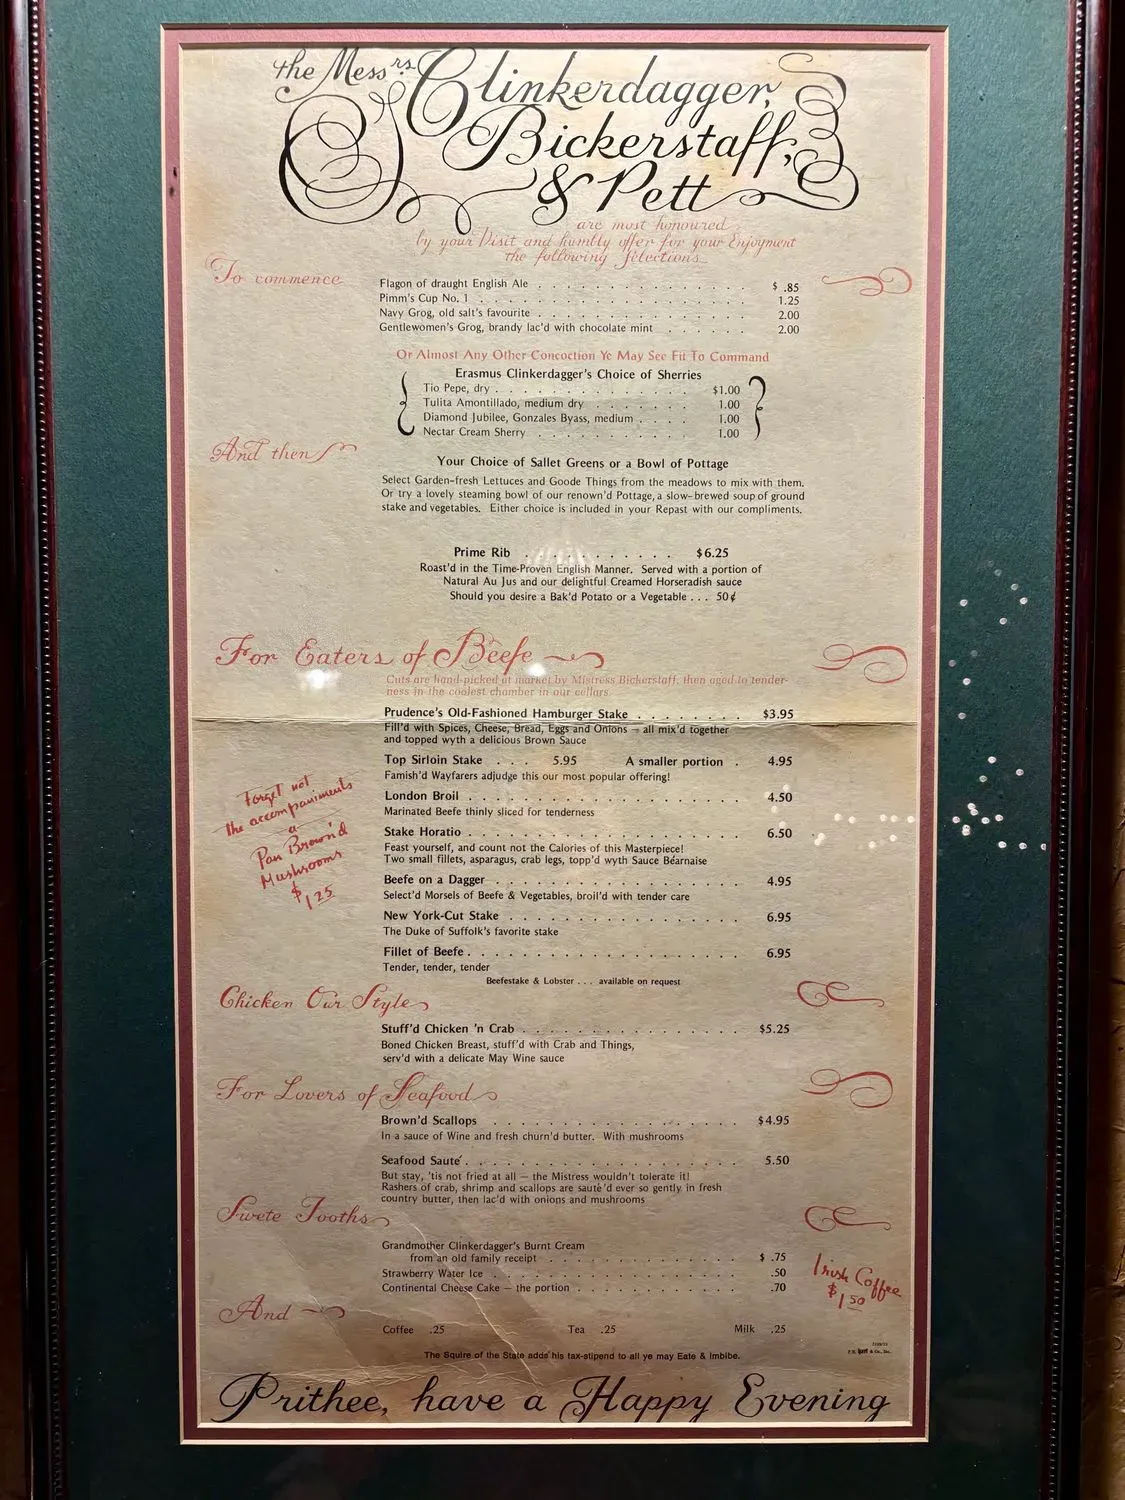 the Messrs.
Clinkerdagger,
Bickerstaff,
& Pett
are most honoured
by your Visit and humbly offer for your Enjoyment
the following Selections
To commence
Flagon of draught English Ale . . . . . . . . . . . . . $ .85
Pimm's Cup No. 1 . . . . . . . . . . . . . . . . . 1.25
Navy Grog, old salt's favourite . . . . . . . . . . . . . 2.00
Gentlewomen's Grog, brandy lac'd with chocolate mint . . . . . . 2.00
Or Almost Any Other Concoction Ye May See Fit To Command
Erasmus Clinkerdagger's Choice of Sherries
Tio Pepe, dry . . . . . . . . . . . . . $1.00
Tulita Amontillado, medium dry . . . . . . 1.00
Diamond Jubilee, Gonzales Byass, medium . . . . 1.00
Nectar Cream Sherry . . . . . . . . . . 1.00
And then
Your Choice of Sallet Greens or a Bowl of Pottage
Select Garden-fresh Lettuces and Goode Things from the meadows to mix with them.
Or try a lovely steaming bowl of our renown'd Pottage, a slow-brewed soup of ground
stake and vegetables. Either choice is included in your Repast with our compliments.
Prime Rib . . . . . . . . . . . $6.25
Roast'd in the Time-Proven English Manner. Served with a portion of
Natural Au Jus and our delightful Creamed Horseradish sauce
Should you desire a Bak'd Potato or a Vegetable . . . 50¢
For Eaters of Beefe
Cuts are hand-picked at market by Mistress Bickerstaff, then aged to tender-
ness in the coolest chamber in our cellars
Prudence's Old-Fashioned Hamburger Stake . . . . . . . $3.95
Fill'd with Spices, Cheese, Bread, Eggs and Onions — all mix'd together
and topped wyth a delicious Brown Sauce
Top Sirloin Stake . . . 5.95 A smaller portion . 4.95
Famish'd Wayfarers adjudge this our most popular offering!
London Broil . . . . . . . . . . . . . . . . . 4.50
Marinated Beefe thinly sliced for tenderness
Stake Horatio . . . . . . . . . . . . . . . . . 6.50
Feast yourself, and count not the Calories of this Masterpiece!
Two small fillets, asparagus, crab legs, topp'd wyth Sauce Béarnaise
Forget not
the accompaniments
a
Pan Brown'd
Mushrooms
$1.25
Beefe on a Dagger . . . . . . . . . . . . . . . 4.95
Select'd Morsels of Beefe & Vegetables, broil'd with tender care
New York-Cut Stake . . . . . . . . . . . . . . 6.95
The Duke of Suffolk's favorite stake
Fillet of Beefe . . . . . . . . . . . . . . . . . 6.95
Tender, tender, tender
Beefestake & Lobster . . . available on request
Chicken Our Style
Stuff'd Chicken 'n Crab . . . . . . . . . . . . . $5.25
Boned Chicken Breast, stuff'd with Crab and Things,
serv'd with a delicate May Wine sauce
For Lovers of Seafood
Brown'd Scallops . . . . . . . . . . . . . . . $4.95
In a sauce of Wine and fresh churn'd butter. With mushrooms
Seafood Sauté . . . . . . . . . . . . . . . . . 5.50
But stay, 'tis not fried at all — the Mistress wouldn't tolerate it!
Rashers of crab, shrimp and scallops are sauté'd ever so gently in fresh
country butter, then lac'd with onions and mushrooms
Swete Tooths
Grandmother Clinkerdagger's Burnt Cream
from an old family receipt . . . . . . . . . . . . $ .75
Strawberry Water Ice . . . . . . . . . . . . . . . .50
Continental Cheese Cake — the portion . . . . . . . . . . .70
Irish Coffee
$1.50
And
Coffee .25 Tea .25 Milk .25
The Squire of the State adds his tax-stipend to all ye may Eate & Imbibe.
Prithee, have a Happy Evening